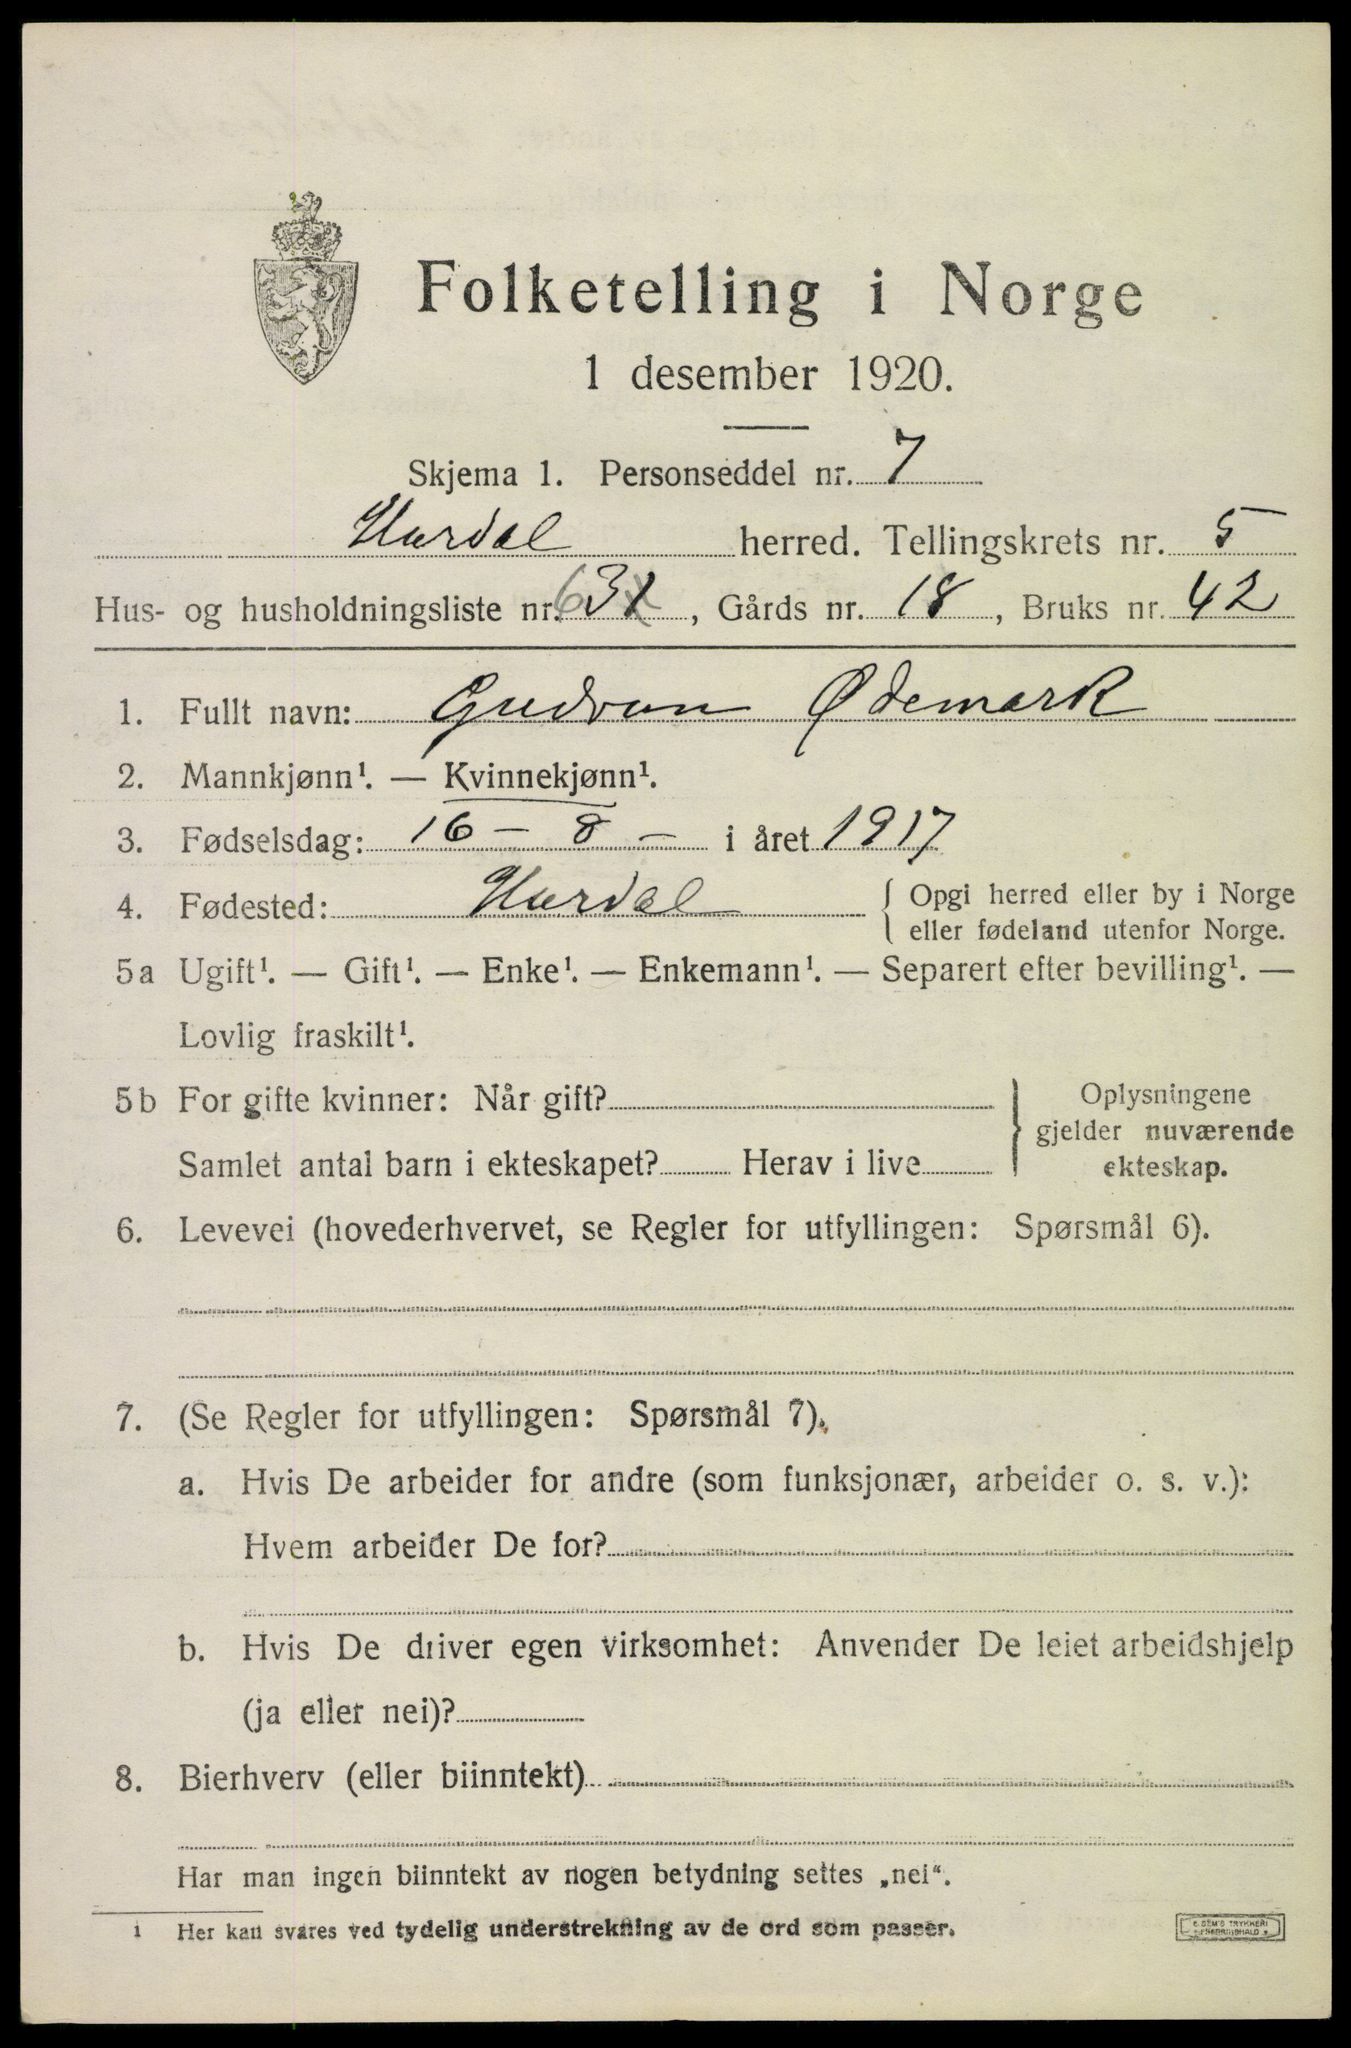 Folketelling i Norge
1 desember 1920.
Skjema 1. Personseddel nr. 7
Hurdal herred. Tellingskrets nr. 5
Hus- og husholdningsliste nr. 63x, Gårds nr. 18, Bruks nr. 42
1. Fullt navn: Gudrun Ødemark
2. Mannkjønn¹. — Kvinnekjønn¹.
3. Fødselsdag: 16 - 8 - i året 1917
4. Fødested: Hurdal { Opgi herred eller by i Norge
eller fødeland utenfor Norge.
5a Ugift¹. — Gift¹. — Enke¹. — Enkemann¹. — Separert efter bevilling¹. —
Lovlig fraskilt¹.
5b For gifte kvinner: Når gift? Oplysningene
gjelder nuværende
Samlet antal barn i ekteskapet? Herav i live ekteskap.
6. Levevei (hovederhvervet, se Regler for utfyllingen: Spørsmål 6).
7. (Se Regler for utfyllingen: Spørsmål 7).
a. Hvis De arbeider for andre (som funksjonær, arbeider o. s. v.):
Hvem arbeider De for?
b. Hvis De driver egen virksomhet: Anvender De leiet arbeidshjelp
(ja eller nei)?
8. Bierhverv (eller biinntekt)
Har man ingen biinntekt av nogen betydning settes „nei“.
1 Her kan svares ved tydelig understrekning av de ord som passer.
E. SEM'S TRYKKERI
FREDRIKSHALD